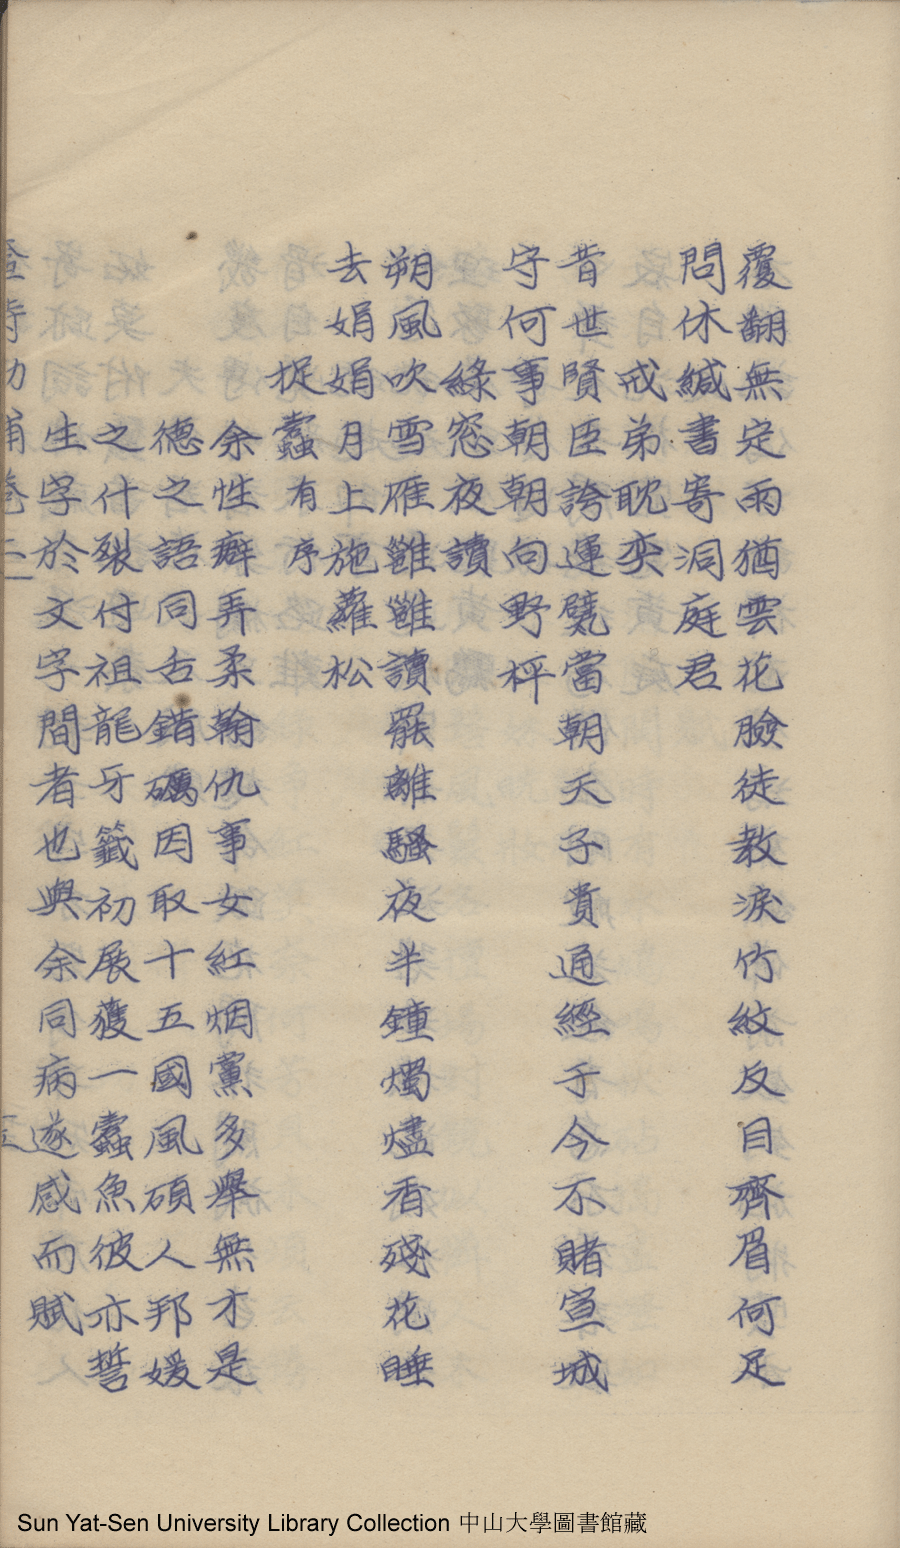 覆翻無定雨猶雲花臉徒教淚竹紋反目齊眉何足
問休緘書寄洞庭君
戒弟耽奕
昔世賢臣誇運甓當朝天子貴通經于今不賭宣城
守何事朝朝向野枰
綠窓夜讀
朔風吹雪雁雝雝讀罷離騷夜半鐘燭燼香殘花睡
去娟娟月上施蘿松
捉蠹有序
余性癖弄柔翰仇事女紅烟黨多舉無才是
德之語同舌錯礪因取十五國風碩人邦媛
之什裂付祖龍牙籤初展獲一蠹魚彼亦誓
生字於文字間者也與余同病遂感而賦
Sun Yat-Sen University Library Collection 中山大學圖書館藏